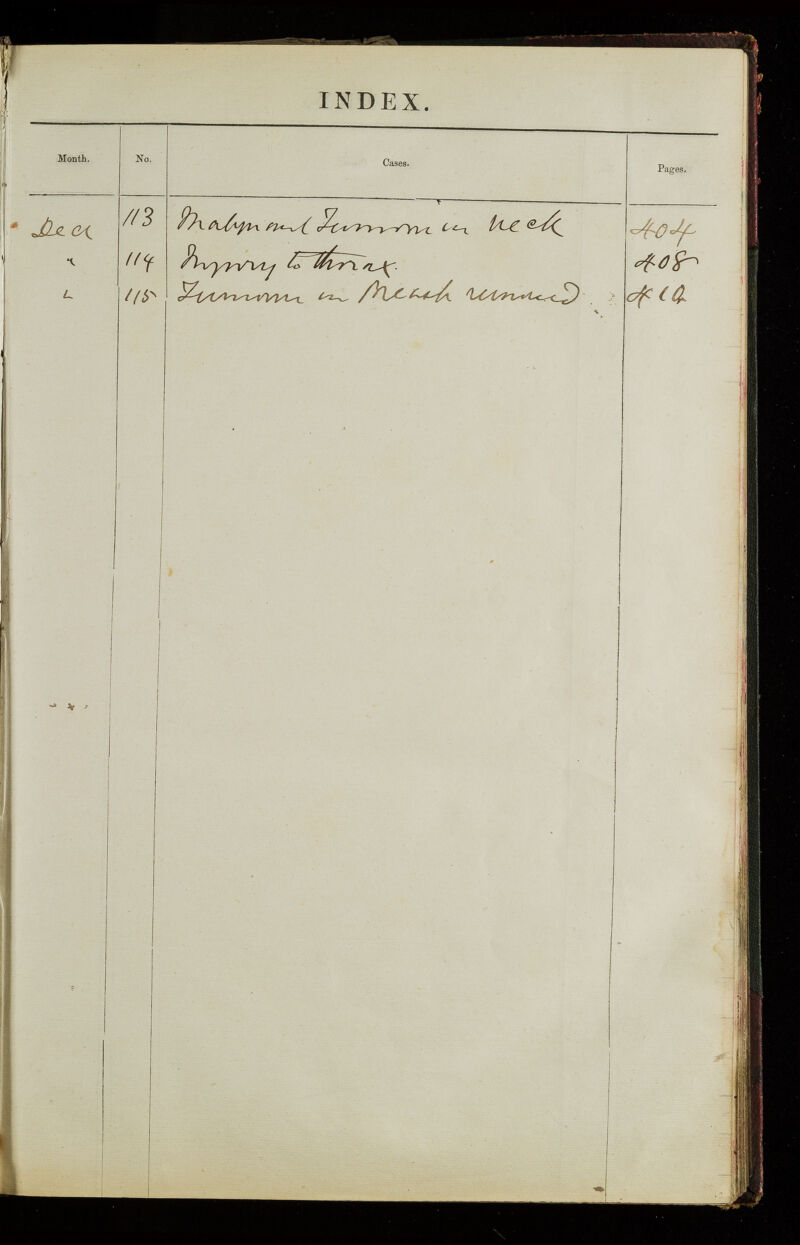 INDEX.
Month. No. Cases. Pages.
Dec 113 Malignant Tumour in neck 404
" 114 Injury to thorax. 408
" 115 Tumour in removed